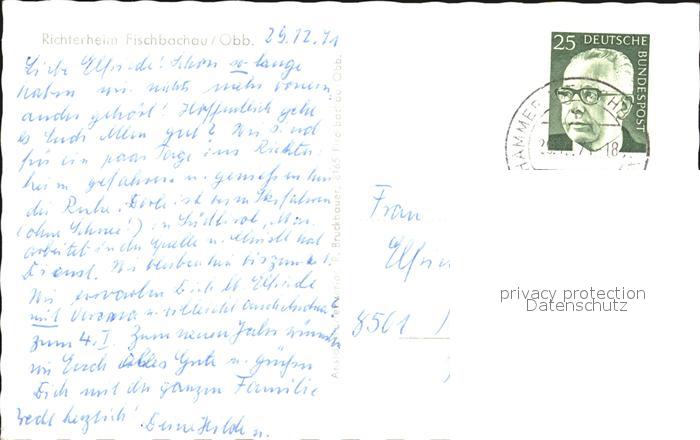 Richterheim Fischbachau/Obb. 29.12.71
Liebe Elfriede! Schon so lange
haben wir nichts mehr vonein
ander gehört! Hoffentlich geht
es Euch Allen gut? Wir sind
für ein paar Tage ins Richter
heim gefahren u. genießen hier
die Ruhe. ist beim Skifahren
(ohne Schnee!) in Südtirol,
arbeitet in der Quelle u. hat
Dienst. Wir bleiben hier bis zum
Wir erwarten Dich lb. Elfriede
mit Verena u. vielleicht auch
zum 4.I. Zum neuen Jahr wünschen
wir Euch alles Gute u. grüßen
Dich mit der ganzen Familie
recht herzlich! Deine Hilde u.
25 DEUTSCHE
BUNDESPOST
HAMMER
71-18
Frau
Elfrie
8501
privacy protection
Datenschutz
P. Bruckbauer, 8165 Fischbachau Obb.